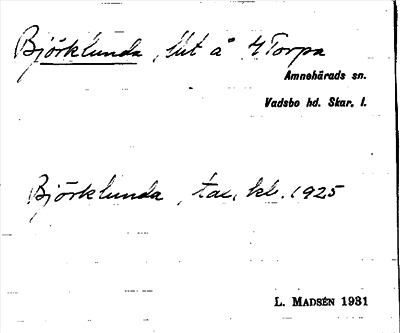 Björklunda, lht å 4 Torpa
Amnehärads sn.
Vadsbo hd. Skar. l.
Björklunda, tax. kb. 1925
L. MADSÉN 1931